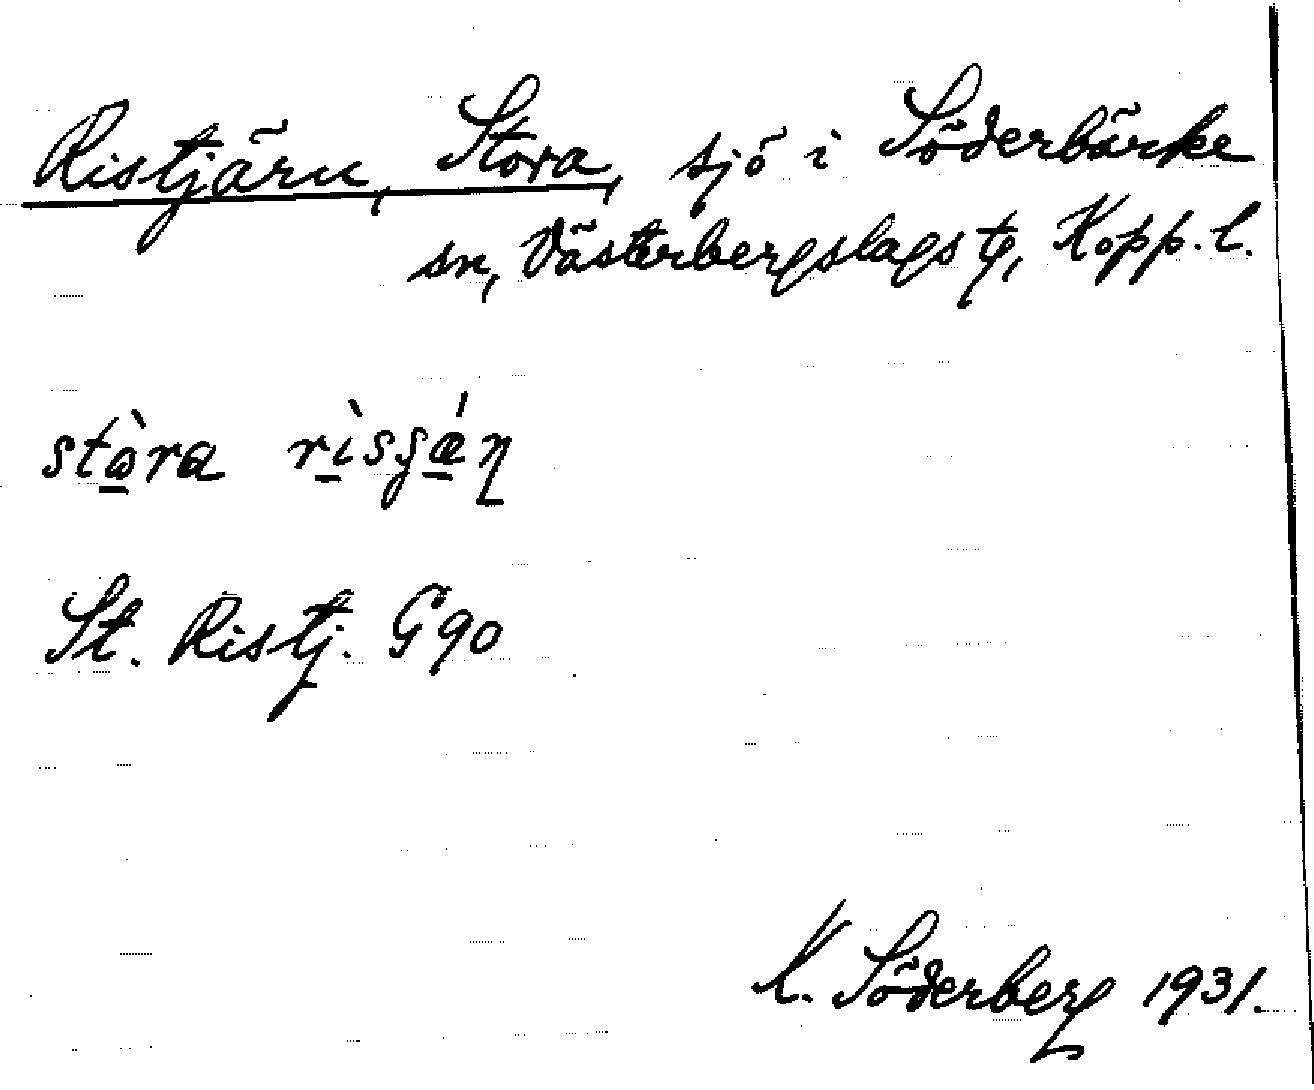 Ristjärn, Stora, sjö i Söderbärke
sn, Västerbergslags tg, Kopp. l.
stòra rìsʂǽɳ
St. Ristj. G 90
K. Söderberg 1931.